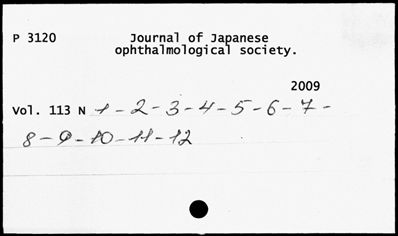 P 3120 Journal of Japanese
ophthalmological society.
2009
Vol. 113 N 1-2-3-4-5-6-7-
8-9-10-11-12